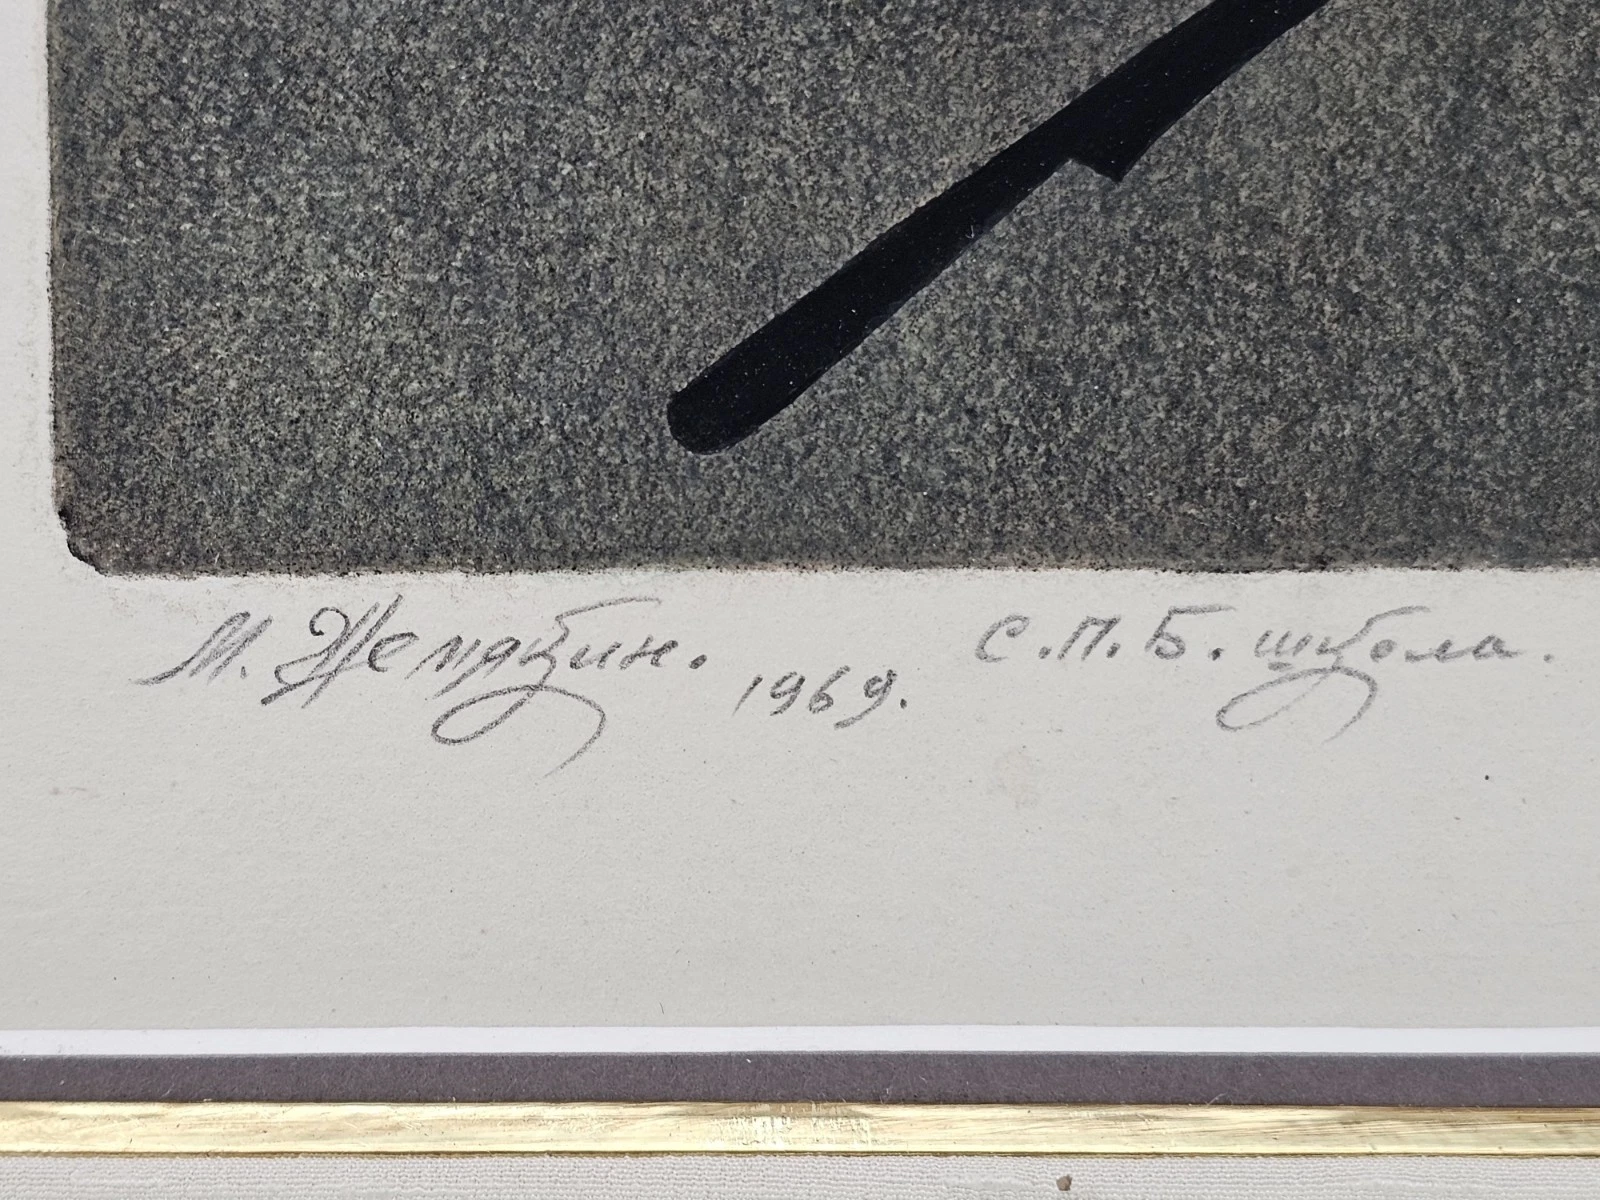 М. Шемякин. 1969. С.П.Б. школа.